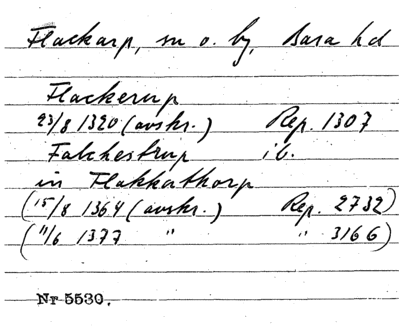 Flackarp, sn o. by, Bara hd
Flackerup
23/8 1320 (avskr.) Rep. 1307
Falchestrup ib.
in Flakkathorp
(15/8 1364 (avskr.) Rep. 2732)
(11/6 1377 " " 3166)
Nr 5530.